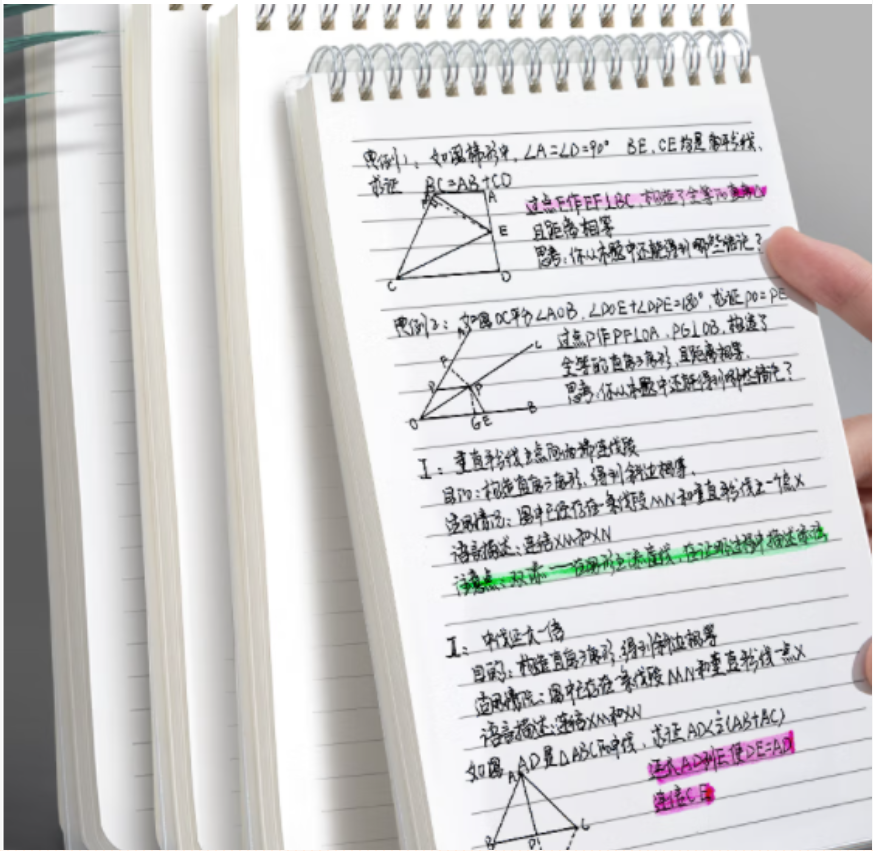 典例1：如图梯形中，∠A=∠D=90° BE、CE均是角平分线，
求证 BC=AB+CD
过点E作EF⊥BC，构造了全等的直角
且距离相等
思考：你从本题中还能得到哪些结论？
B
A
E
C
D
典例2：如图OC平分∠AOB，∠DOE+∠DPE=180°，求证PD=PE
过点P作PF⊥OA，PG⊥OB，构造了
全等的直角三角形，且距离相等.
思考：你从本题中还能得到哪些结论？
A
F
C
D
P
O
G
E
B
I：垂直平分线上点向两端连线段
目的：构造直角三角形，得到斜边相等.
适用情况：图中已经存在一条线段MN和垂直平分线上一个点X
语言描述：连结XM和XN
注意点：双添一一在图形上添虚线，在证明过程中描述添法
II：中线延长一倍
目的：构造直角三角形，得到斜边相等
适用情况：图中已存在一条线段MN和垂直平分线一点X
语言描述：连结XM和XN
如图，AD是△ABC的中线，求证AD<½(AB+AC)
延长AD到E使DE=AD
连结CE
A
B
D
C